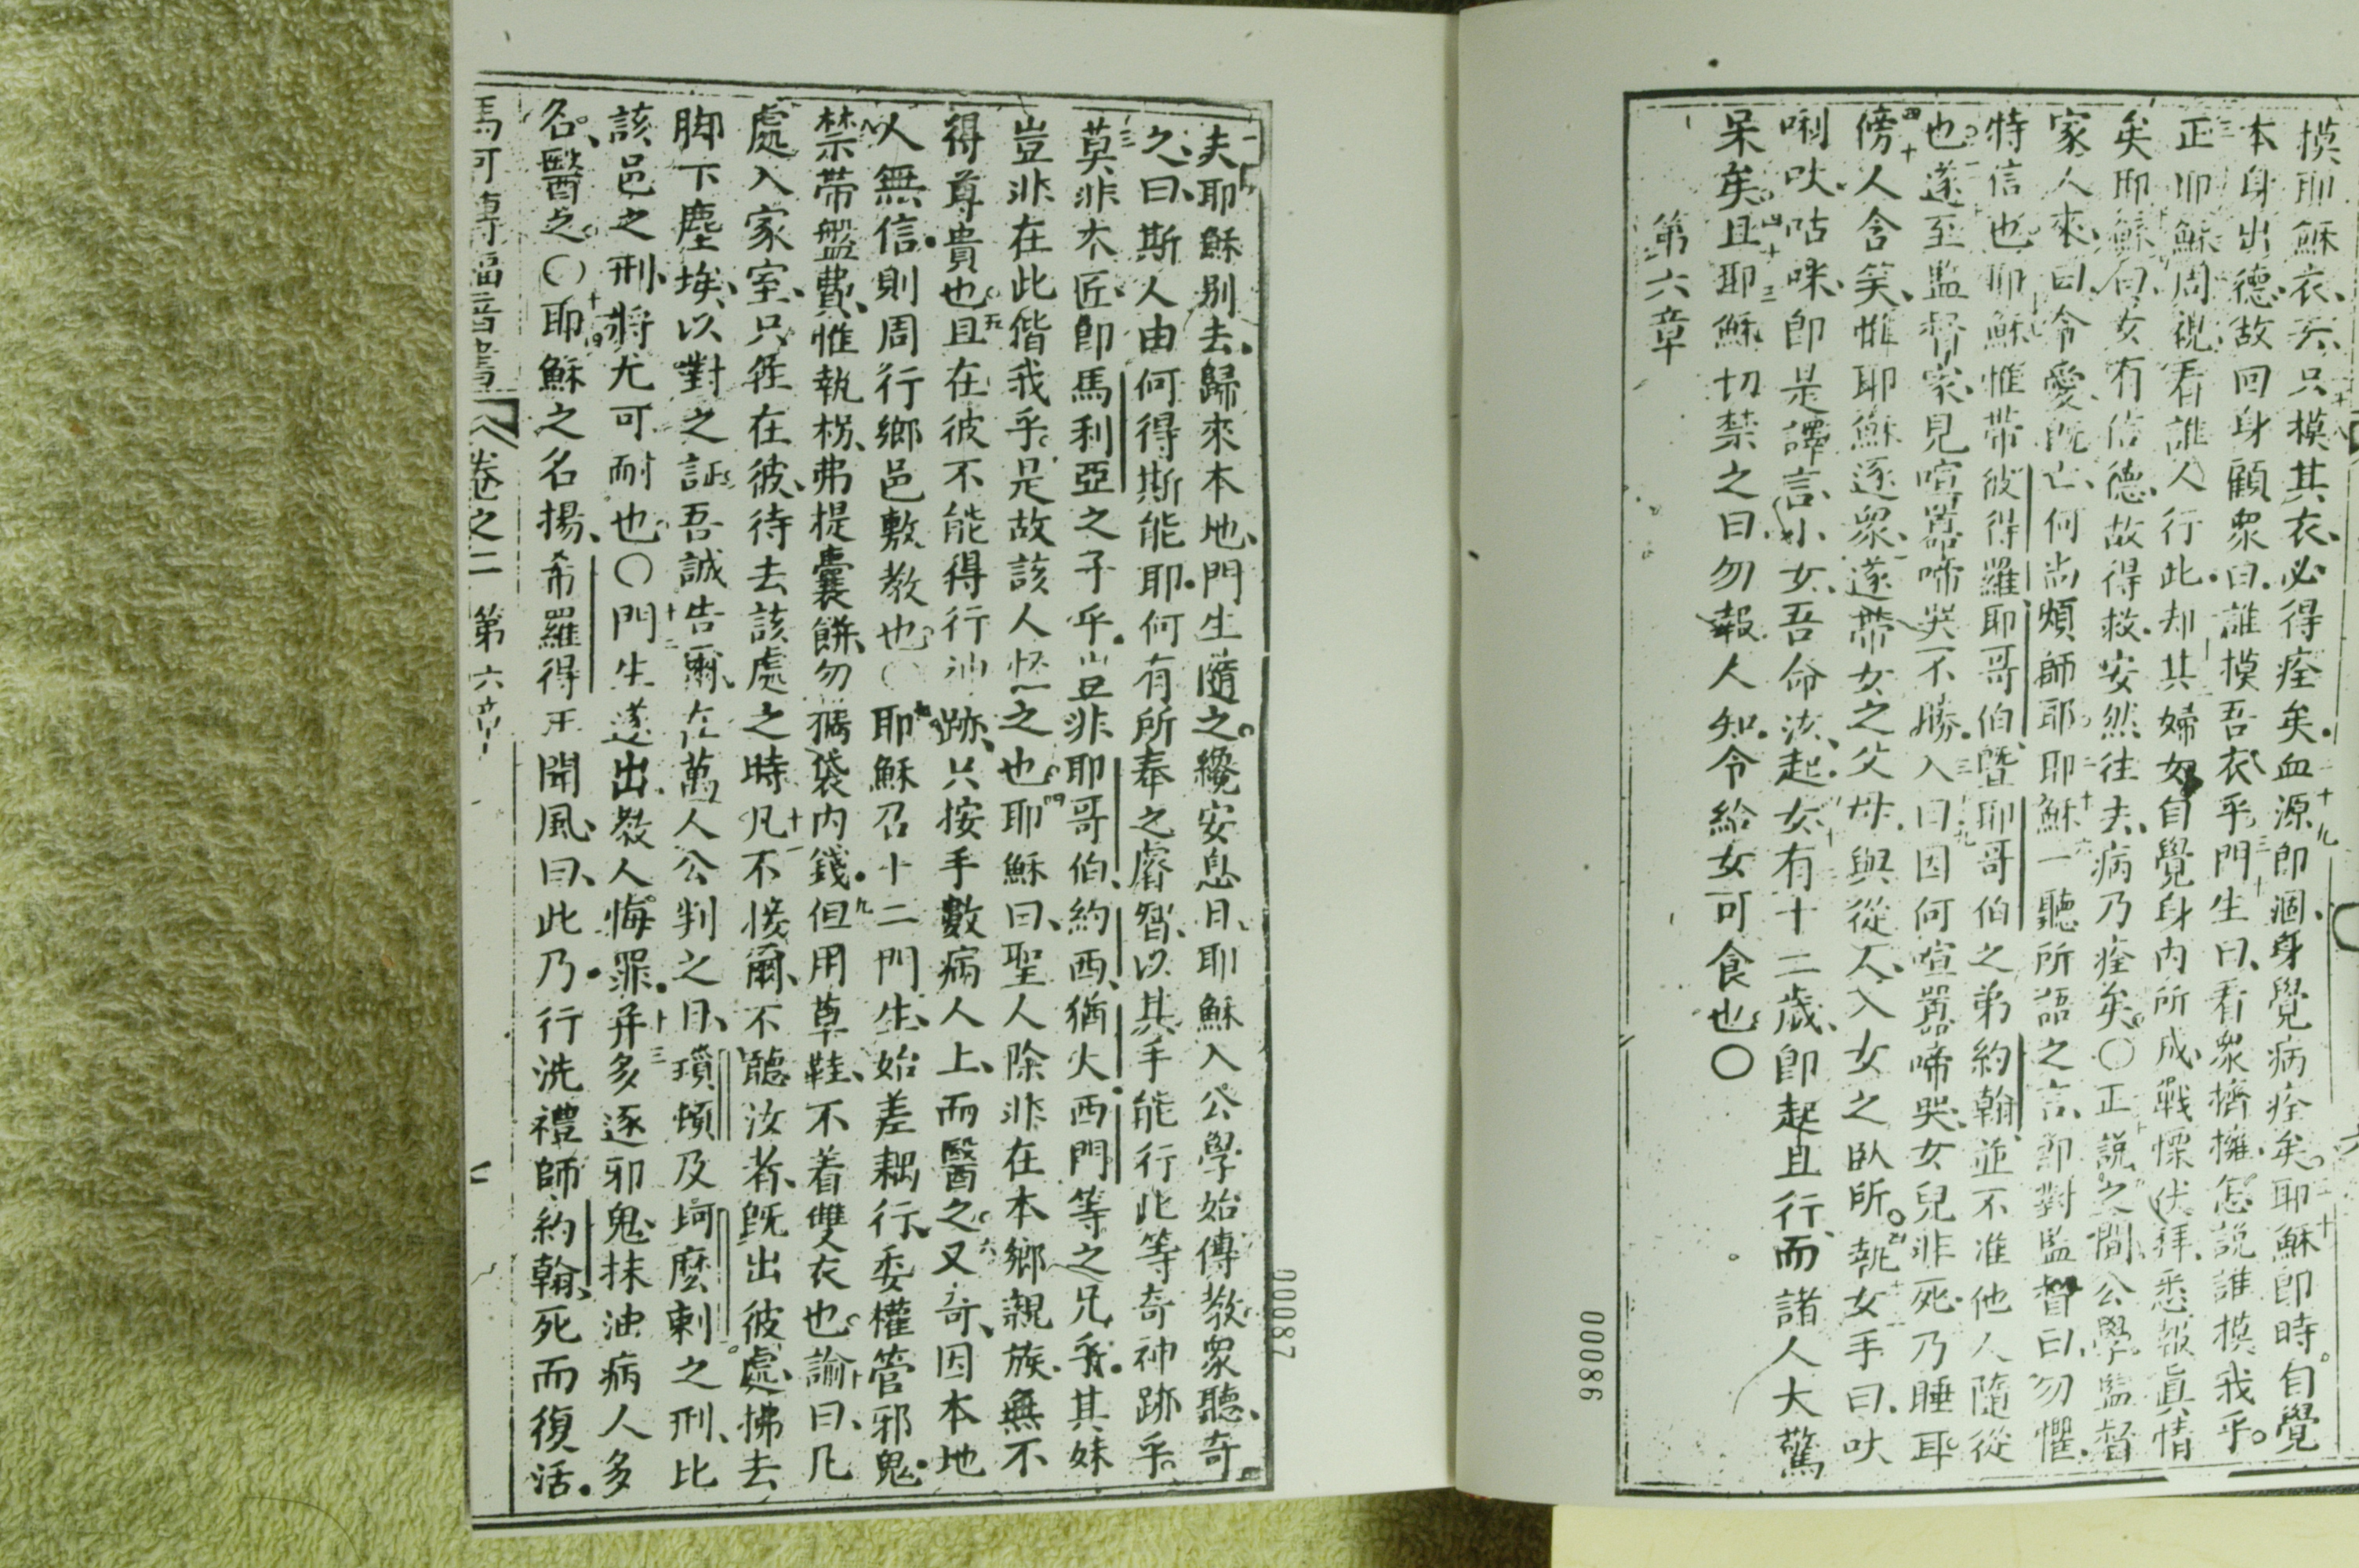 摸耶穌衣云只摸其衣必得痊矣血源即涸身覺病痊矣耶穌即時自覺
本身出德故回身顧眾曰誰摸吾衣乎門生曰看眾擠擁怎說誰摸我乎
正耶穌周視看誰人行此却其婦女自覺身內所成戰慄伏拜悉報真情
矣耶穌向女有信德故得救安然往去病乃痊矣〇正說之間公學監督
家人來曰令愛既亡何尚煩師耶耶穌一聽所語之言即對監督曰勿懼
特信也耶穌惟帶彼得羅耶哥伯暨耶哥伯之弟約翰並不准他人隨從
也遂至監督家見喧嚣啼哭不勝入曰因何喧嚣啼哭女兒非死乃睡耳
傍人含笑惟耶穌逐眾遂帶女之父母與從人入女之臥所執女手曰吠
唎吠咕咪即是譯言小女吾命汝起女有十二歲即起且行而諸人大驚
呆矣且耶穌切禁之曰勿報人知令給女可食也〇
第六章
00086
夫耶穌別去歸來本地門生隨之纔安息日耶穌入公學始傳教眾聽奇
之曰斯人由何得斯能耶何有所奉之睿智以其手能行此等奇神跡乎
莫非木匠即馬利亞之子乎豈非耶哥伯約西猶火西門等之兄乎其妹
豈非在此偕我乎是故該人怪之也耶穌曰聖人除非在本鄉親族無不
得尊貴也且在彼不能得行神跡只按手數病人上而醫之又奇因本地
人無信則周行鄉邑敷教也〇耶穌召十二門生始差耦行委權管邪鬼
禁帶盤費惟執柺弗提囊餅勿獁袋內錢但用草鞋不着雙衣也諭曰凡
處入家室只在彼待去該處之時凡不接爾不聽汝者既出彼處拂去
脚下塵埃以對之証吾誠告爾在萬人公判之日瑣煩及坷麽剌之刑比
該邑之刑將尤可耐也〇門生遂出教人悔罪并多逐邪鬼抹油病人多
名醫之〇耶穌之名揚希羅得王聞風曰此乃行洗禮師約翰死而復活
馬可傳福音書 卷之二 第六章
00087